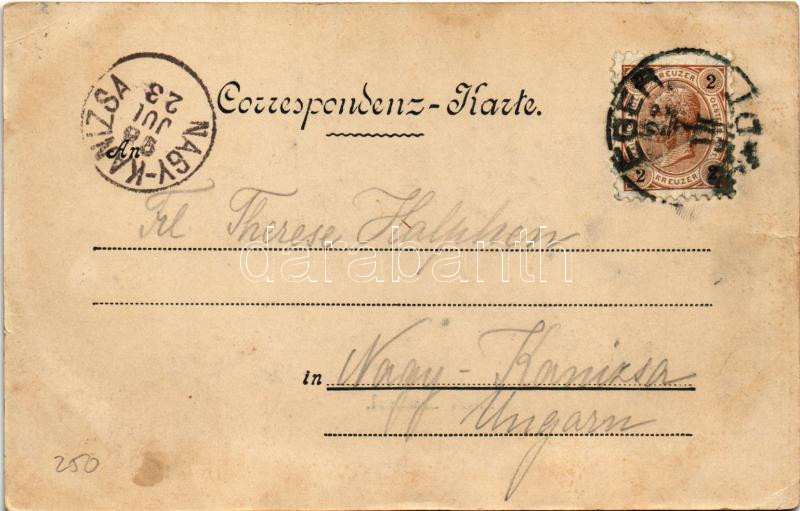 Correspondenz-Karte.
NAGY-KANIZSA
98
JUL
23
2 KREUZER 2
EGER
2 KREUZER 2
An
Frl Therese Halphen
darabanth
in Nagy-Kanizsa
Ungarn
250